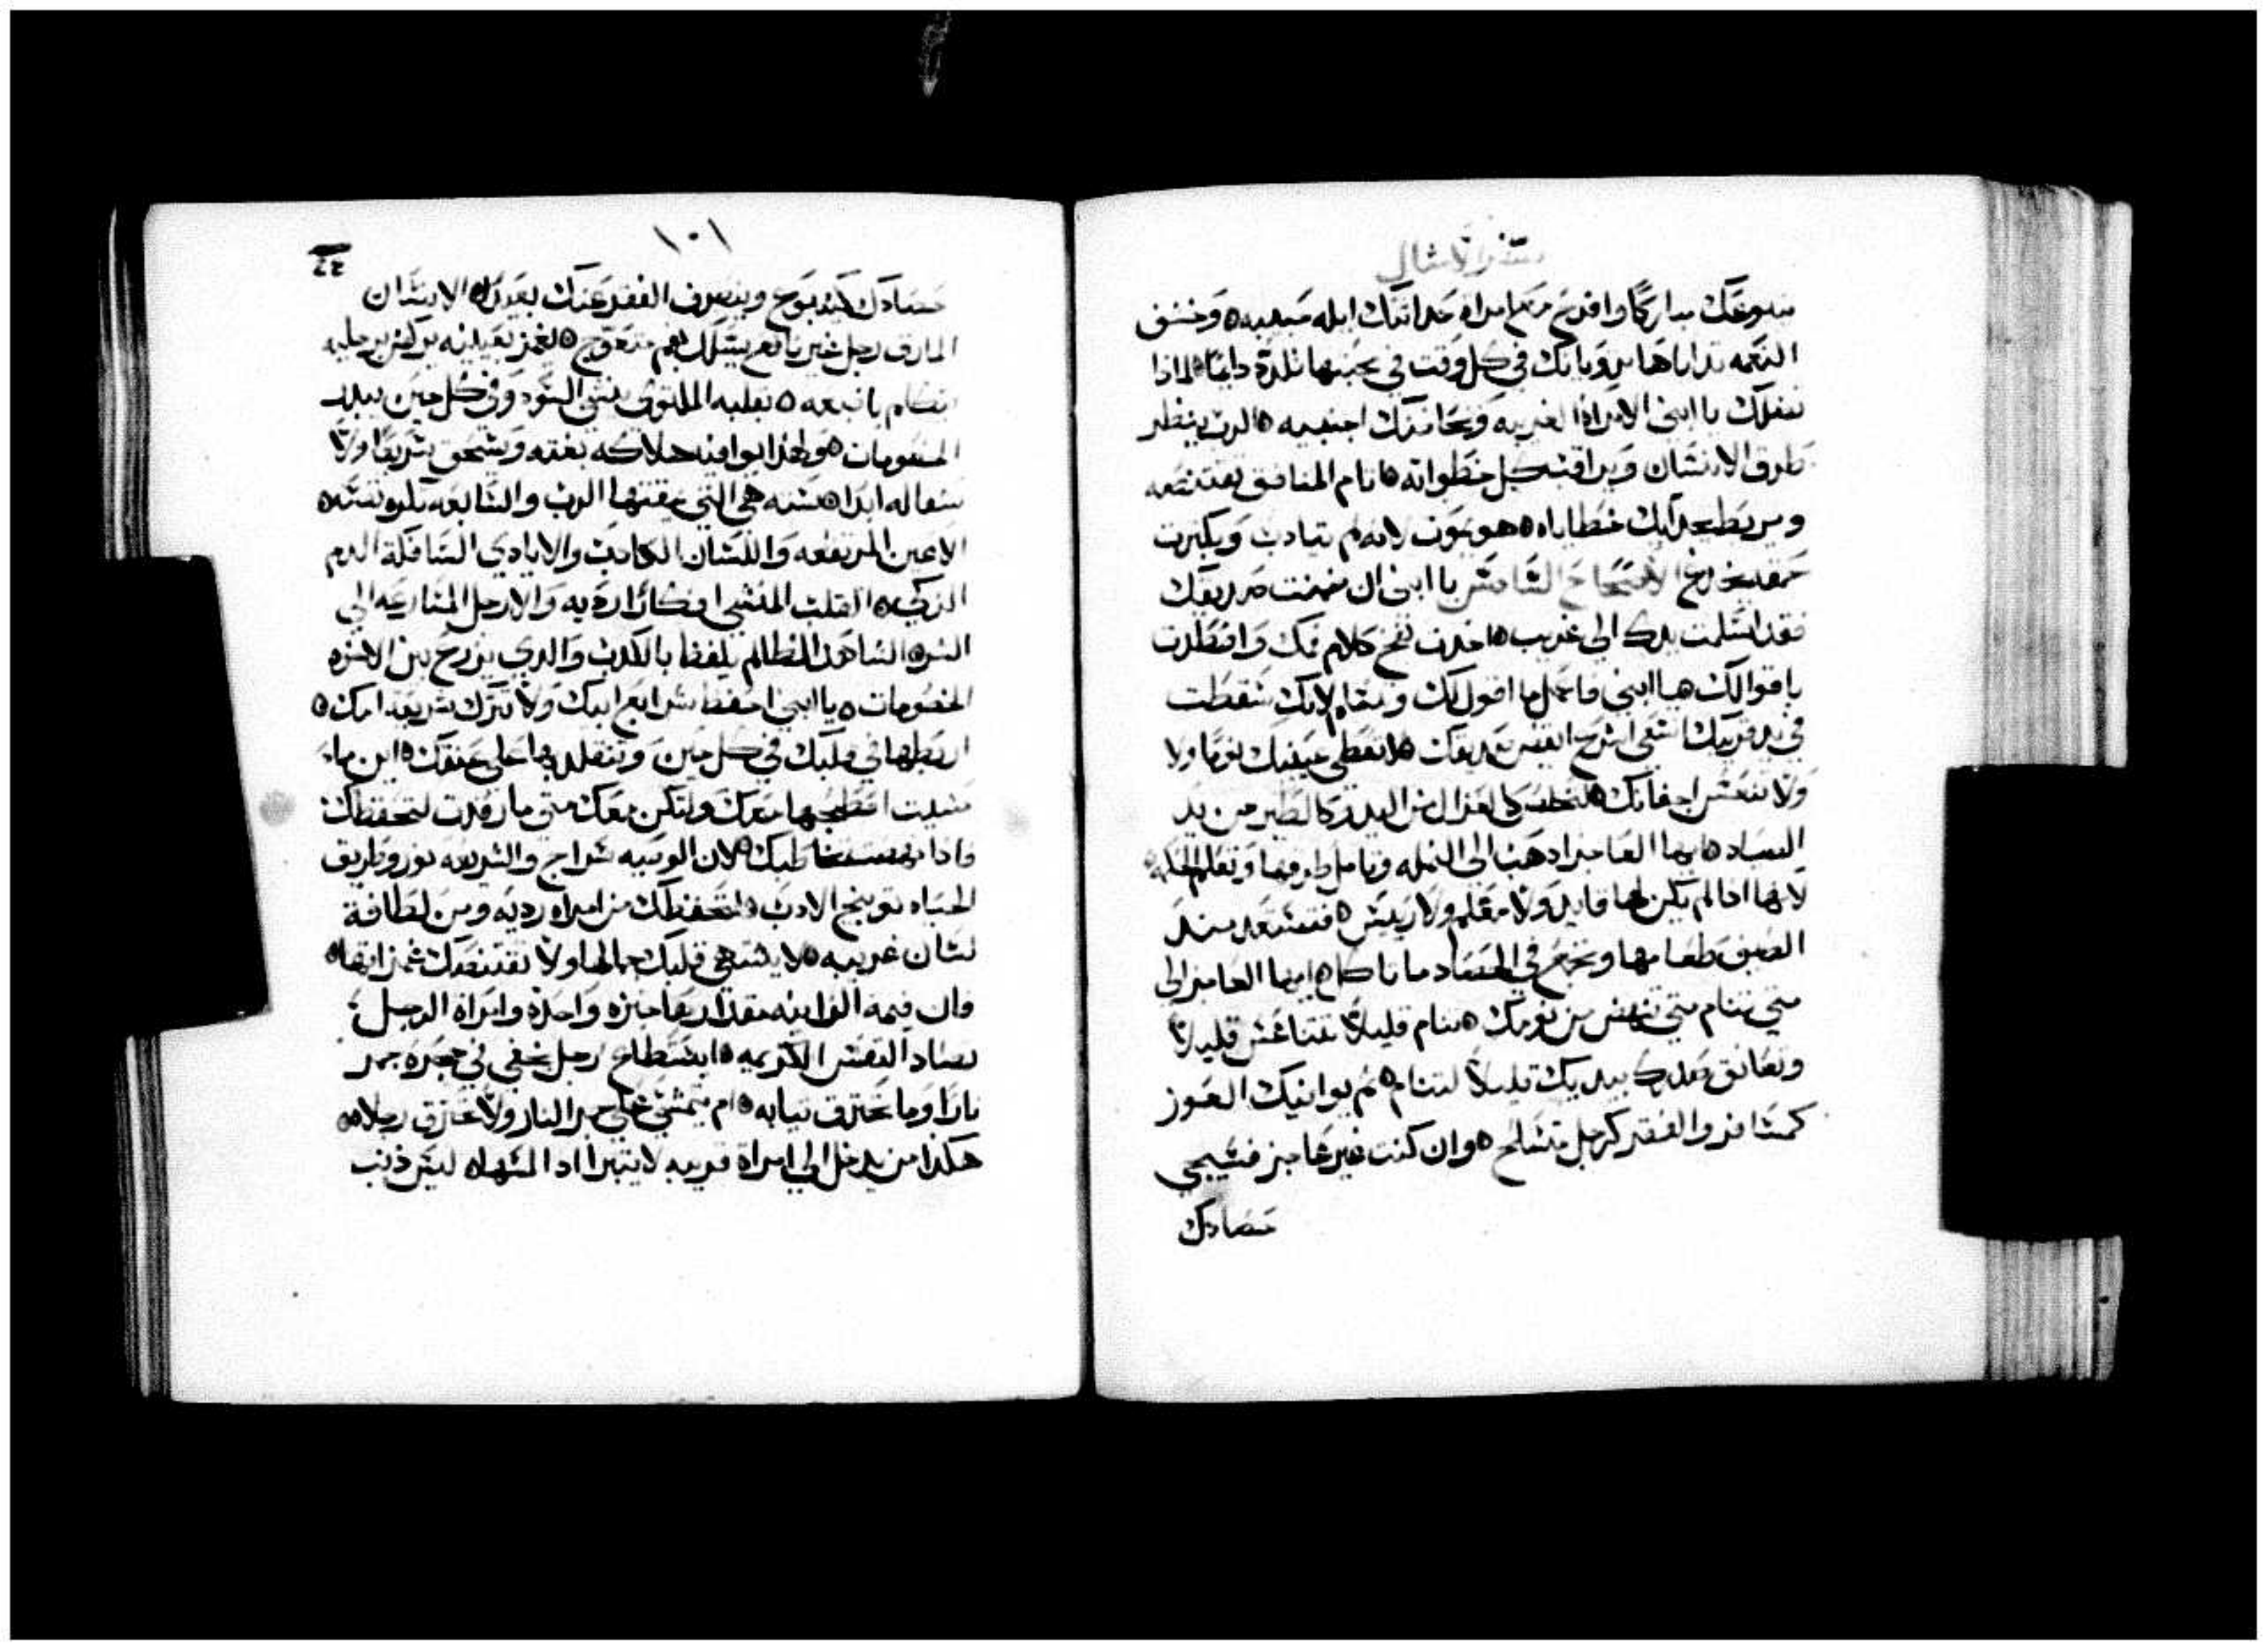 سفر الامثال
ينبوعك مباركا وافرح مع امراة حداثتك ايله محببه ٥ وخشف
النعمه تدياها يرويانك في كل وقت في محبتها تلدد دايما ٥ لماذا
تضلك يا ابني الامراة الغريبه وتحاضنك اجنبيه ٥ الرب ينظر
طرق الانسان ويراقب كل خطواته ٥ اثام المنافق تقتنصه
ويربط بحبايل خطاياه ٥ هو يموت لانه لم يتادب وبكثرة
حمقه ينخدع الاصحاح السادس يا ابني ان ضمنت صديقك
فقد اسلمت يدك الى غريب ٥ اخذت بفخ كلام فمك واضطدت
باقوالك ٥ يا ابني فاعمل ما اقول لك ونقا لانك سقطت
في يد قريبك اسعى اسرع ايقض صديقك ٥ لا تعطي عينيك نوما ولا
ولا تنعس اجفانك ٥ لتخلص كالغزال من اليد وكالطير من يد
الصياد ٥ ايها العاجز اذهب الى النمله وتامل طرقها وتعلم الحكمه
لانها اذا لم يكن لها قايد ولا معلم ولا رييس ٥ فتستعد منذ
الصيف طعامها وتجمع في الحصاد ما تاكل ٥ ايها العاجز الى
متى تنام متى تنهض من نومك ٥ تنام قليلا تتناعس قليلا
وتعانق صدرك بيديك قليلا لتنام ٥ ثم يوافيك العوز
كمسافر والفقر كرجل متسلح ٥ وان كنت غير عاجز فسيجي
حصادك
١٠١
حصادك كينبوع وينصرف الفقر عنك بعيدا ٥ الانسان
المارق رجل غير نافع يسلك بفم متعوج ٥ يغمز بعينيه يركض برجليه
يتكلم باصبعه ٥ بقلبه الملتوي ينشي السؤ وفي كل حين يبذر
الخصومات ٥ ولهذا يوافيه هلاكه بغته ويسحق سريعا ولا
شفا له ابدا ٥ سته هي التي يمقتها الرب والسابعه تكرهها نفسه ٥
الاعين المرتفعه واللسان الكاذب والايادي السافكة الدم
الزكي ٥ القلب المنشي افكارا رديه والارجل المسارعه الى
الشر ٥ الشاهد الظالم يلفظ بالكذب والذي يزرع بين الاخوه
الخصومات ٥ يا ابني احفظ شرايع ابيك ولا تترك شريعة امك ٥
اربطها في قلبك في كل حين وتتقلد بها على عنقك ٥ اين ما
مشيت اصطحبها معك ولتكن معك متى ما رقدت لتحفظك
واذا تخاطبك ٥ لان الوصيه سراج والشريعه نور وطريق
الحياه توبيخ الادب ٥ لتحفظك من امراه رديه ومن لطافة
لسان غريبه ٥ لا يشتهي قلبك جمالها ولا تقتنصك غمزاتها ٥
وان قيمة الزانيه مقدار خبزه واحده وامراة الرجل
تصاد النفس الكريمه ٥ ايستطاع رجل يخفي في حجره جمر
نارا وما تحترق ثيابه ٥ ام يتمشي على جمر النار ولا تحترق رجلاه ٥
هكذا من يدخل الى امراة قريبه لا يتبرا اذا لمسها ٥ ليس ذنب